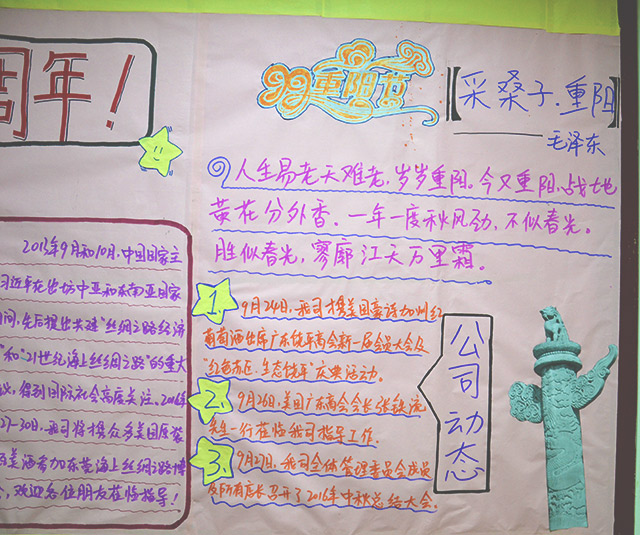 周年！
99重阳节
采桑子.重阳
毛泽东
人生易老天难老,岁岁重阳。今又重阳,战地
黄花分外香.一年一度秋风劲,不似春光。
胜似春光,寥廓江天万里霜。
2013年9月和10月.中国国家主
习近平在出访中亚和东南亚国家
间,先后提出共建"丝绸之路经济
"和"21世纪海上丝绸之路"的重大
议,得到国际社会高度关注。2016年
27-30日.我司将携众多美国原装
萄酒参加东莞海上丝绸之路博
,欢迎各位朋友莅临指导!
1.
9月24日.我司携美国豪诗加州红
葡萄酒出席广东饶平商会新一届会员大会及
"红色苏区.生态饶平"庆典活动。
2.
9月26日,美国广东商会会长张铁流
先生一行莅临我司指导工作.
3.
9月27日,我司全体管理委员会成员
及所有店长召开了2016年中秋总结大会.
公司动态